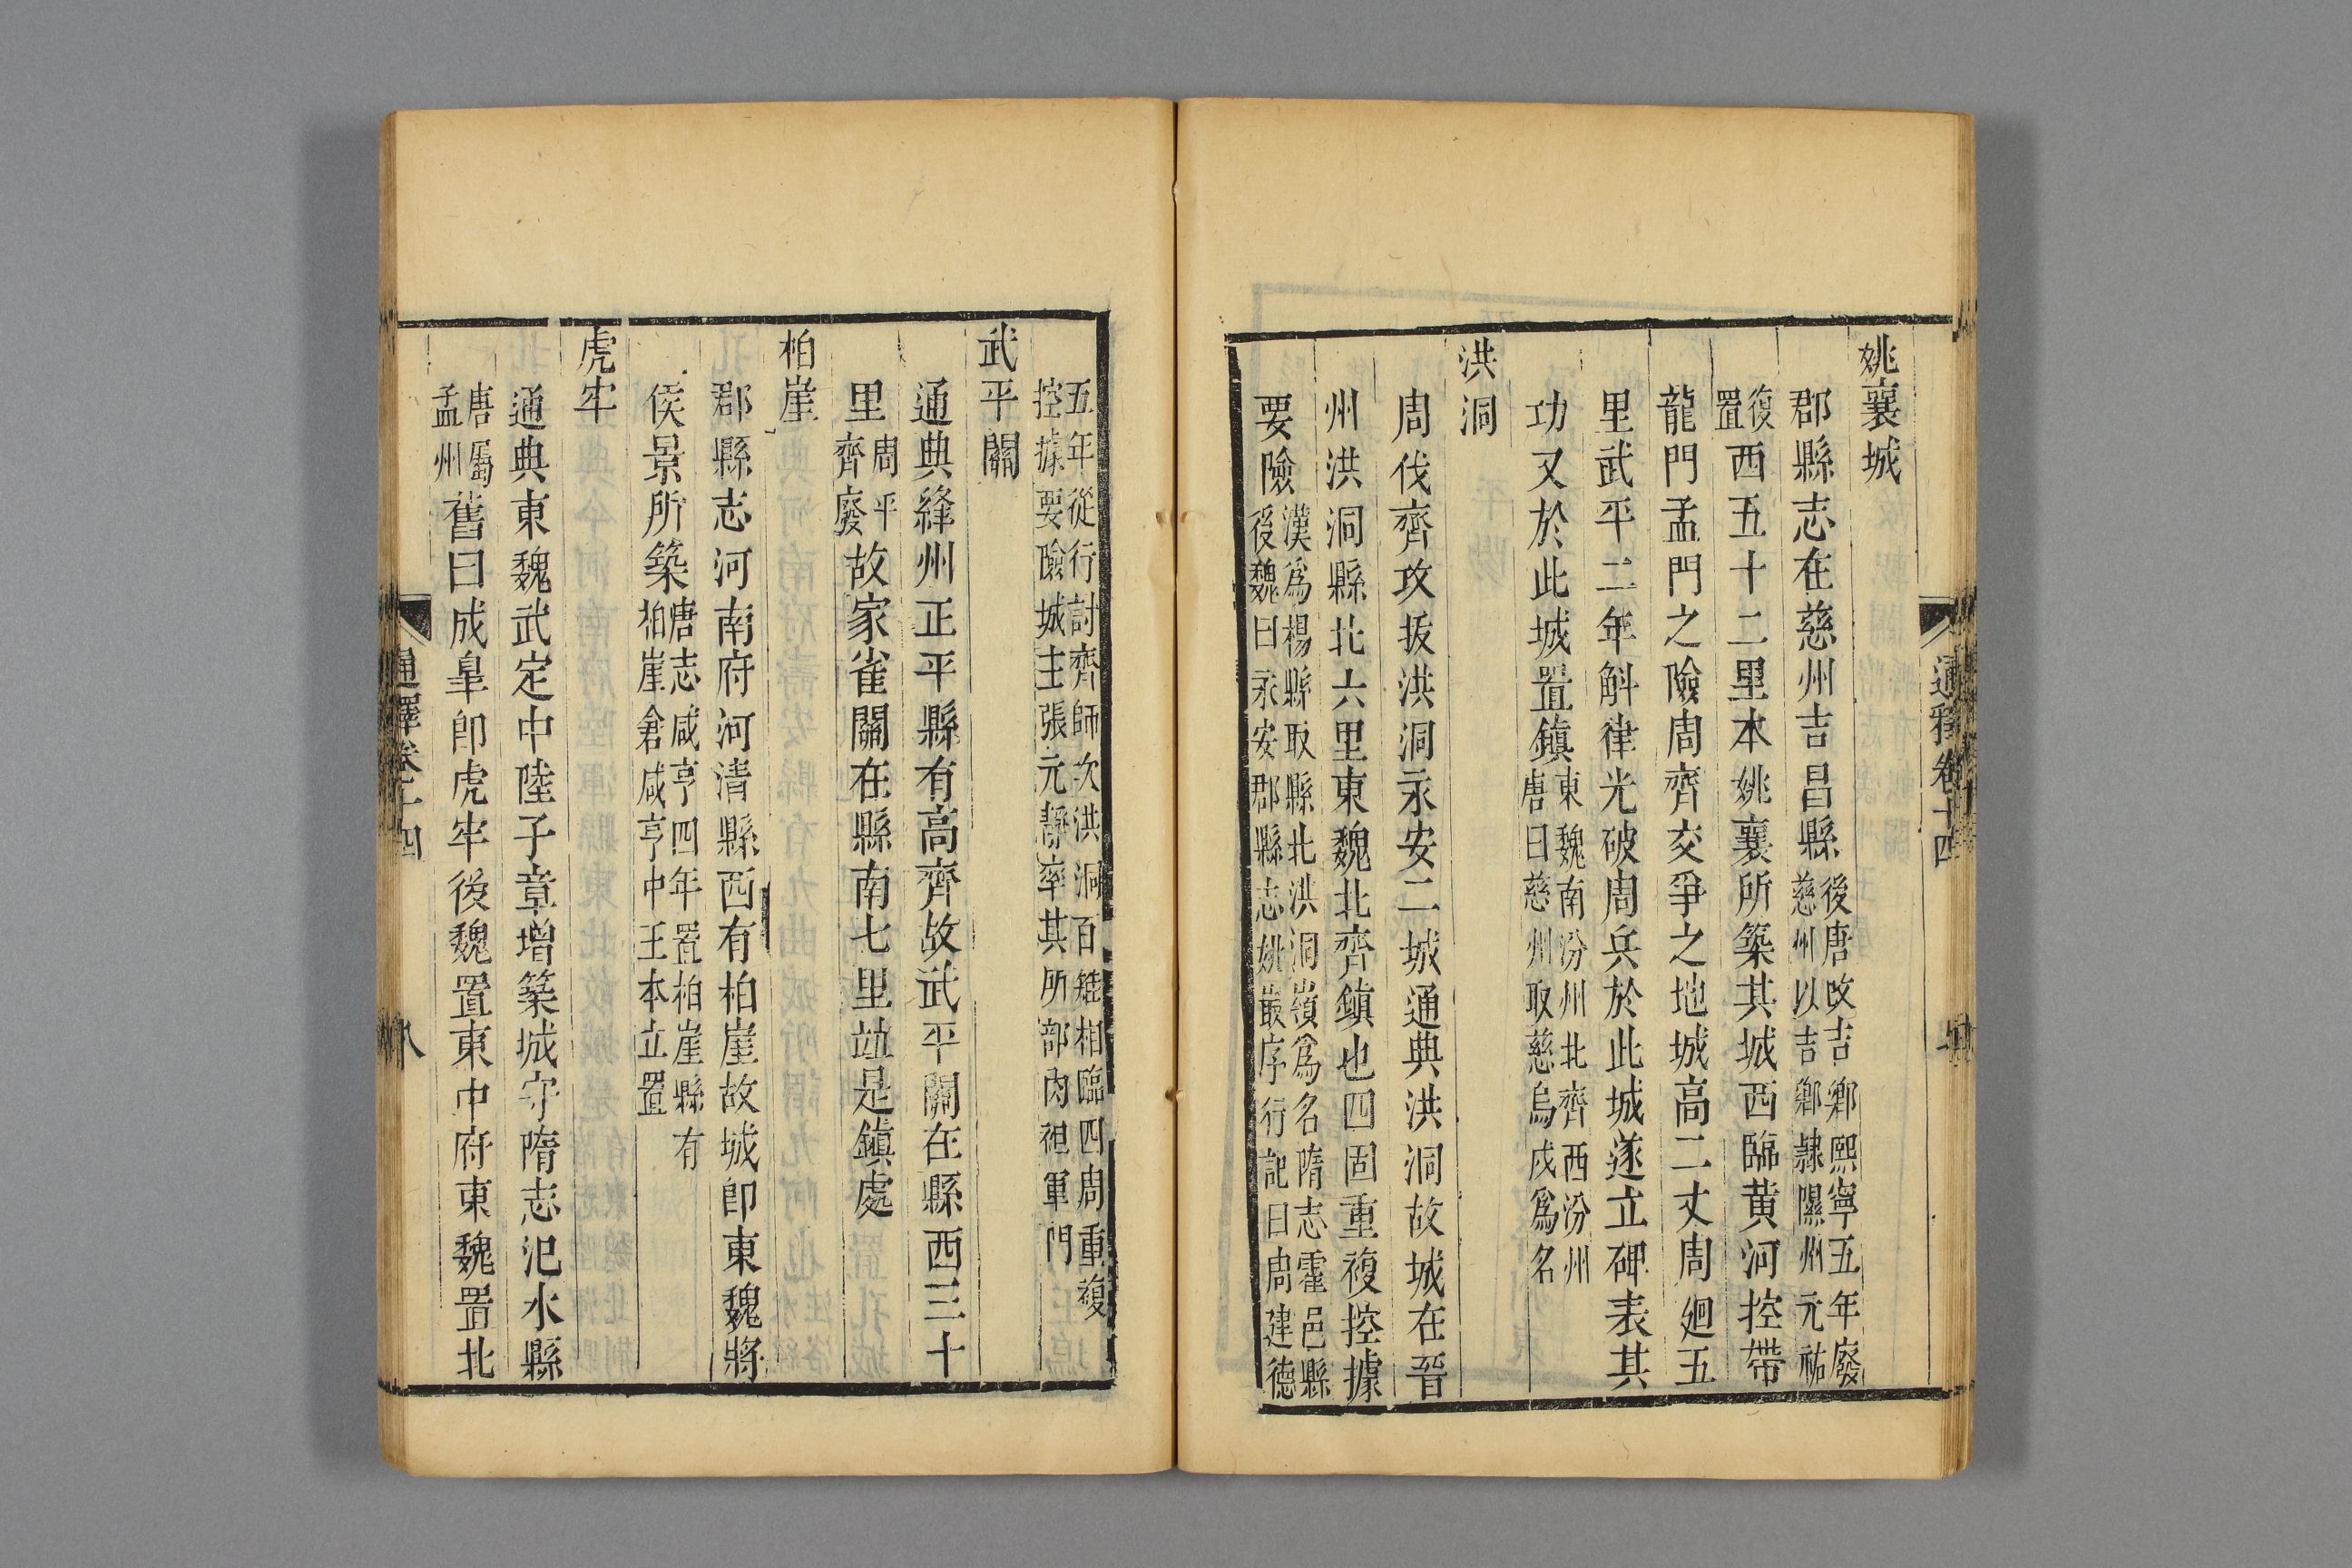 姚襄城
郡縣志在慈州吉昌縣後唐改吉鄉熙寧五年廢慈州以吉鄉隷隰州元祐
復置西五十二里本姚襄所築其城西臨黄河控帶
龍門孟門之險周齊交爭之地城高二丈周廻五
里武平二年斛律光破周兵於此城遂立碑表其
功又於此城置鎮東魏南汾州北齊西汾州唐曰慈州取慈烏戍爲名
洪洞
周伐齊攻拔洪洞永安二城通典洪洞故城在晉
州洪洞縣北六里東魏北齊鎮也四固重複控據
要險漢爲楊縣取縣北洪洞嶺爲名隋志霍邑縣後魏曰永安郡縣志姚最序行記曰周建德
通釋卷十四
五年從行討齊師次洪洞百雉相臨四周重複控據要險城主張元靜率其所部肉袒軍門
武平關
通典絳州正平縣有高齊故武平關在縣西三十
里周平齊廢故家雀關在縣南七里竝是鎮處
柏崖
郡縣志河南府河清縣西有柏崖故城卽東魏將
侯景所築唐志咸亨四年置柏崖縣有柏崖倉咸亨中王本立置
虎牢
通典東魏武定中陸子章增築城守隋志汜水縣
唐屬孟州舊曰成臯卽虎牢後魏置東中府東魏置北
通釋卷十四
八